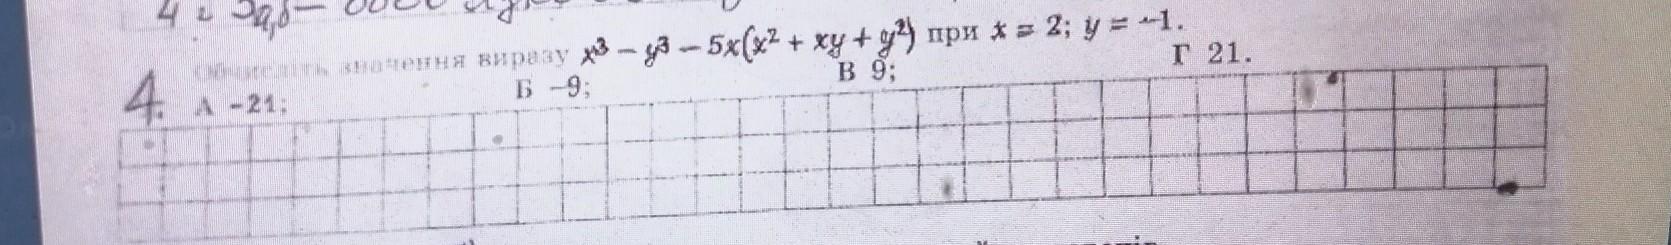 Обчисліть значення виразу x³ − y³ − 5x(x² + xy + y²) при x = 2; y = −1.
4. А −21; Б −9; В 9; Г 21.